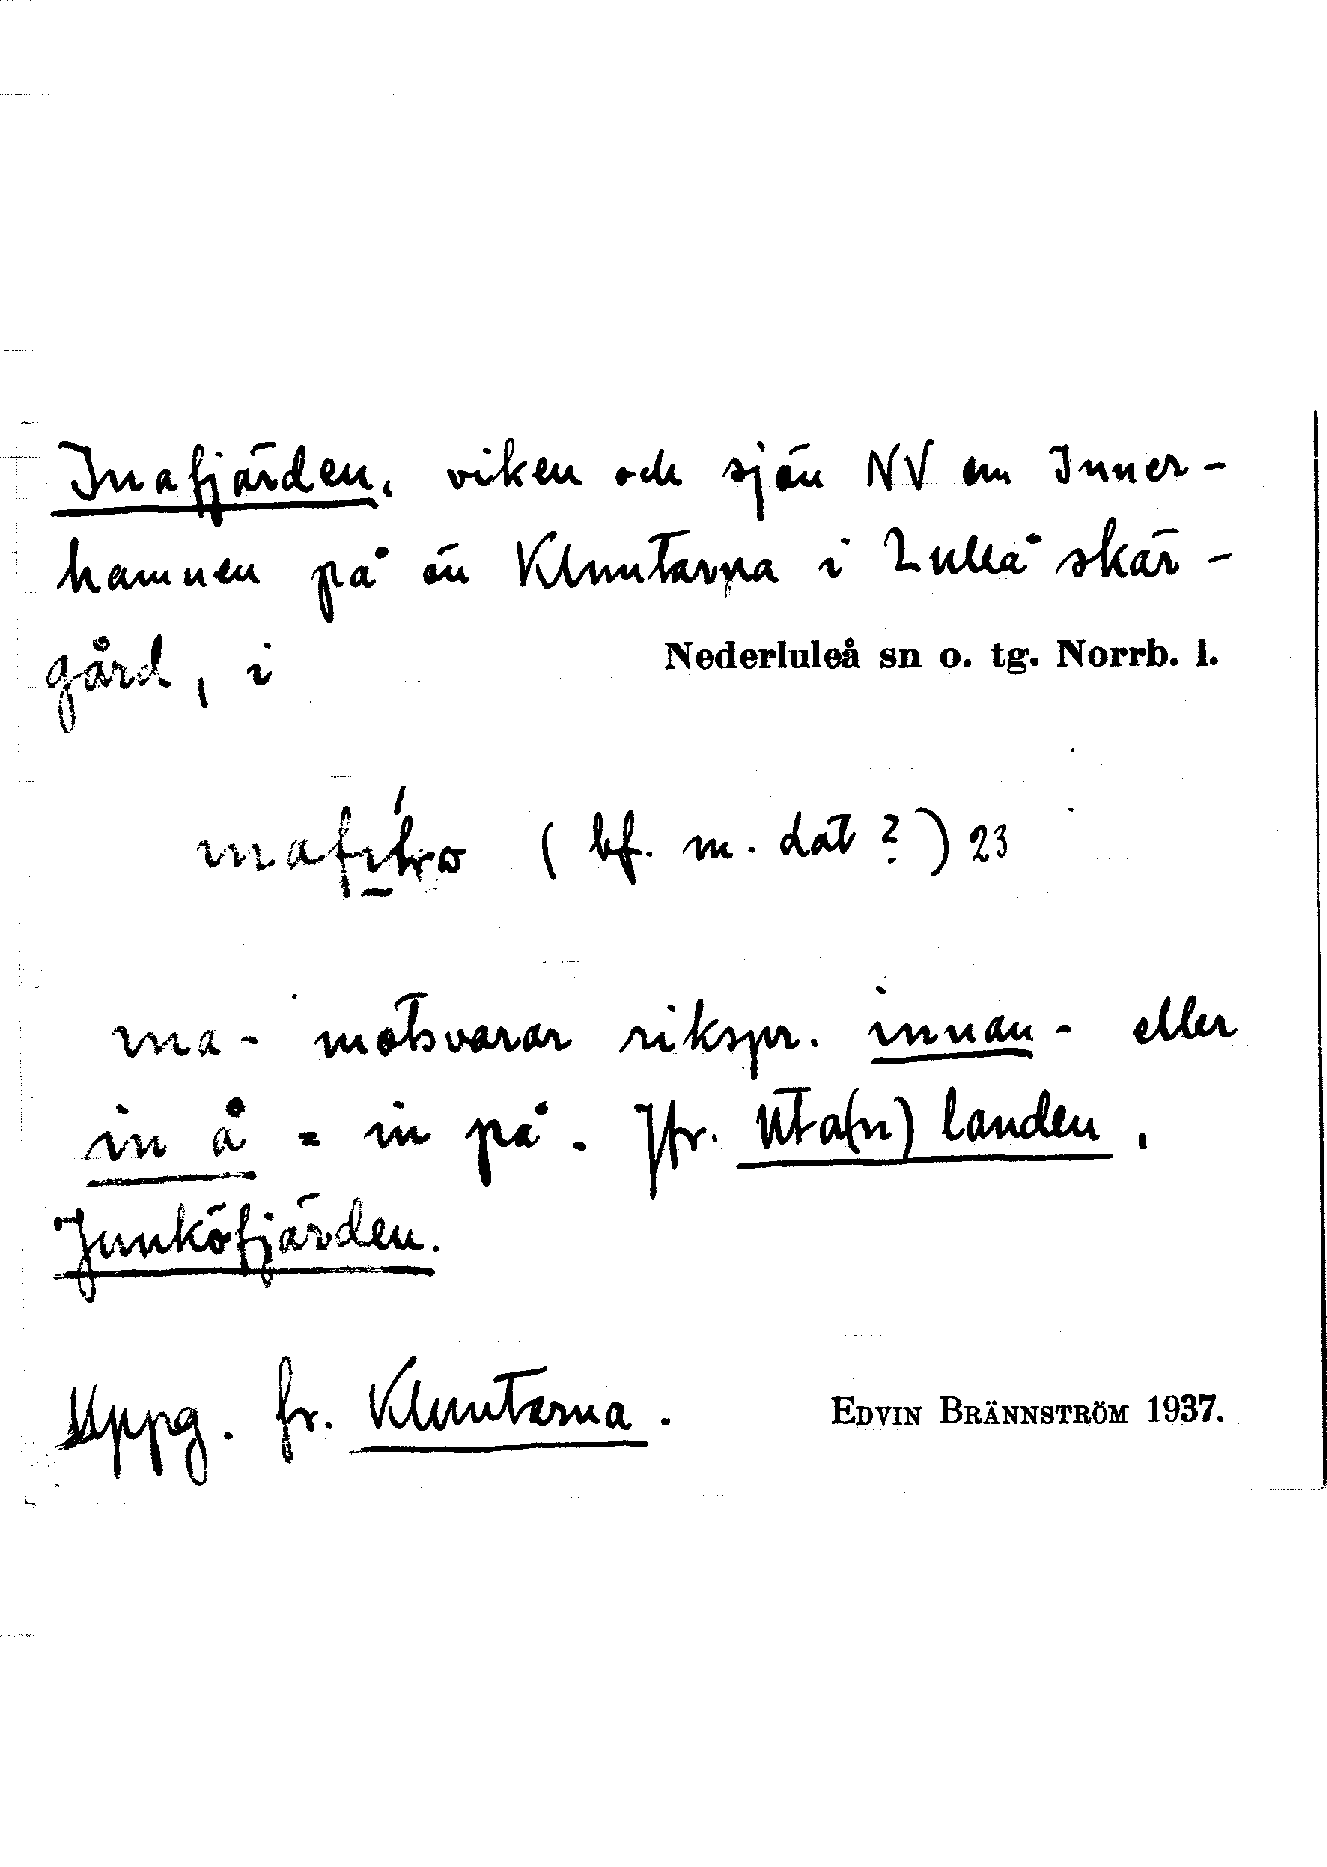 Inafjärden, viken och sjön NV om Inner-
hamnen på ön Kluntarna i Luleå skär-
gård, i Nederluleå sn o. tg. Norrb. l.
(bf. m. dat?) 23
ına- motsvarar rikspr. innan- eller
in å = in på. Jfr. Uta(n)landen,
Junköfjärden.
Uppg. fr. Kluntarna. EDVIN BRÄNNSTRÖM 1937.